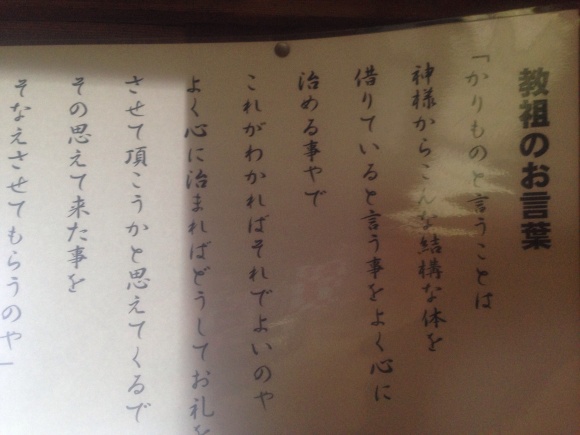 教祖のお言葉
「かりものと言うことは
神様からこんな結構な体を
借りていると言う事をよく心に
治める事やで
これがわかればそれでよいのや
よく心に治まればどうしてお礼を
させて頂こうかと思えてくるで
その思えて来た事を
そなえさせてもらうのや」